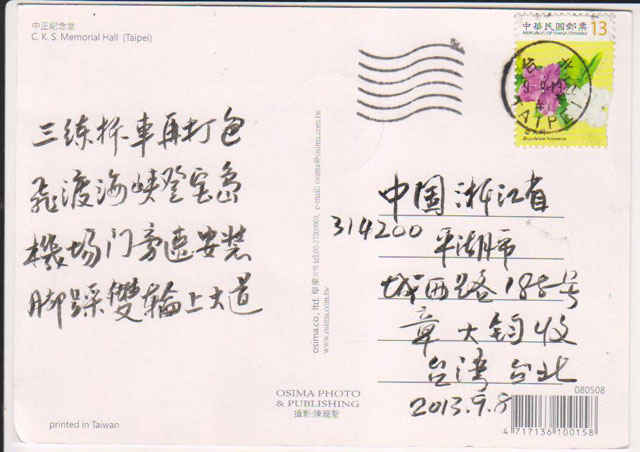 中正紀念堂
C. K. S. Memorial Hall (Taipei)
中華民國郵票 13
REPUBLIC OF CHINA (TAIWAN)
TAIPEI
三练拆車再打包
飛渡海峡登宝島
機场门旁速安装
脚踩雙輪上大道
中国浙江省
314200
平湖市
城西路188号
章大钧收
台湾台北
2013.9.8
osima.co., ltd.
e-mail: osima@osima.com.tw
www.osima.com.tw
OSIMA PHOTO
& PUBLISHING
攝影:陳龍聖
080508
4 717136 100158
printed in Taiwan